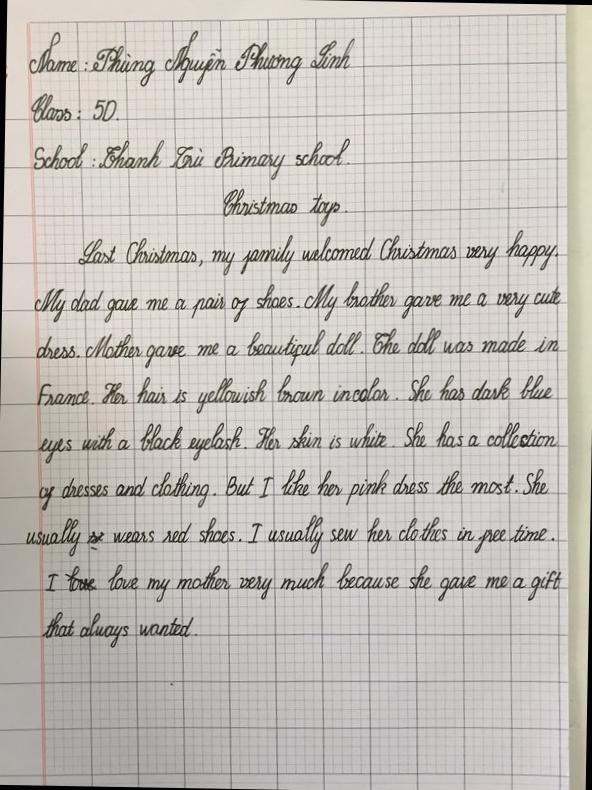 Name : Phùng Nguyễn Phương Linh
Class : 5D.
School : Thanh Trì Primary school.
Christmas toys.
Last Christmas, my family welcomed Christmas very happy.
My dad gave me a pair of shoes. My brother gave me a very cute
dress. Mother gave me a beautiful doll. The doll was made in
France. Her hair is yellowish brown incolor. She has dark blue
eyes with a black eyelash. Her skin is white. She has a collection
of dresses and clothing. But I like her pink dress the most. She
usually wears red shoes. I usually sew her clothes in free time.
I love my mother very much because she gave me a gift
that always wanted.